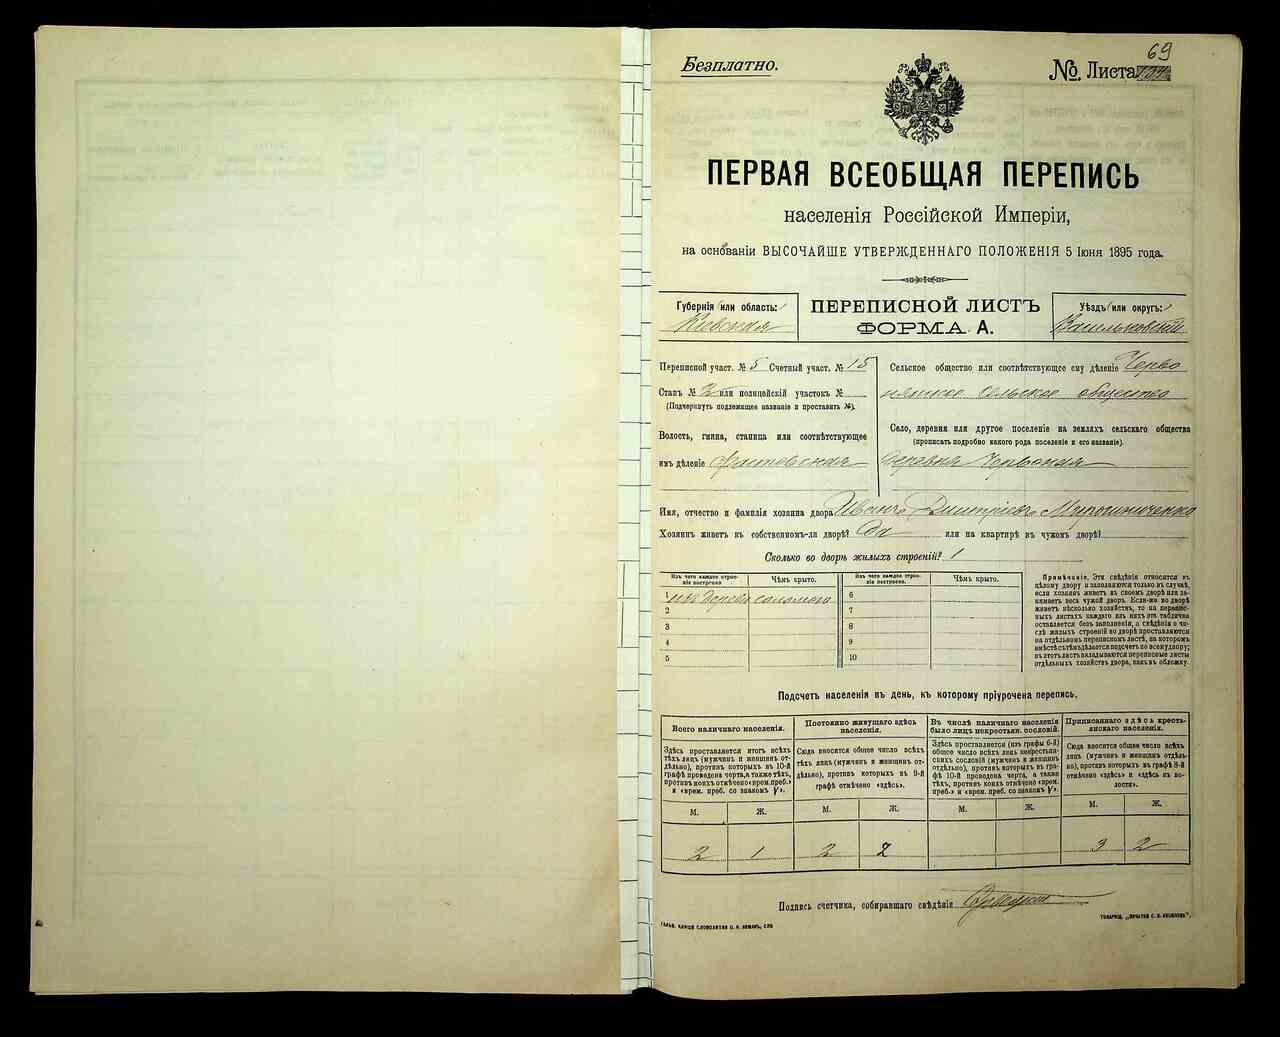 Безплатно.
69
№ Листа
ПЕРВАЯ ВСЕОБЩАЯ ПЕРЕПИСЬ
населенія Россійской Имперіи,
на основаніи ВЫСОЧАЙШЕ УТВЕРЖДЕННАГО ПОЛОЖЕНІЯ 5 Іюня 1895 года.
Губернія или область:
Кіевская
ПЕРЕПИСНОЙ ЛИСТЪ
ФОРМА А.
Уѣздъ или округъ:
Васильковскій
Переписной участ. № 5 Счетный участ. № 15
Станъ № 2 или полицейскій участокъ №
(Подчеркнуть подлежащее названіе и проставить №).
Волость, гмина, станица или соотвѣтствующее
имъ дѣленіе Фастовская
Сельское общество или соотвѣтствующее ему дѣленіе Черво
нянское сельское общество
Село, деревня или другое поселеніе на земляхъ сельскаго общества
(прописать подробно какого рода поселеніе и его названіе).
деревня Червоная
Имя, отчество и фамилія хозяина двора Иванъ Дмитріевъ Мирошниченко
Хозяинъ живетъ въ собственномъ-ли дворѣ? Да или на квартирѣ въ чужомъ дворѣ?
Сколько во дворѣ жилыхъ строеній? 1
Изъ чего каждое строеніе построено
Чѣмъ крыто.
Изъ чего каждое строеніе построено.
Чѣмъ крыто.
1 изъ дерева соломою
2
3
4
5
6
7
8
9
10
Примѣчаніе. Эти свѣдѣнія относятся къ
цѣлому двору и заполняются только въ случаѣ,
если хозяинъ живетъ въ своемъ дворѣ или занимаетъ
весь чужой дворъ. Если-же во дворѣ
живетъ нѣсколько хозяйствъ, то на переписныхъ
листахъ каждаго изъ нихъ эта табличка
оставляется безъ заполненія, а свѣдѣнія о числѣ
жилыхъ строеній во дворѣ проставляются
на отдѣльномъ переписномъ листѣ, на которомъ
вмѣстѣ съ тѣмъ дѣлается подсчетъ по всему двору;
въ этотъ листъ вкладываются переписные листы
отдѣльныхъ хозяйствъ двора, какъ въ обложку.
Подсчетъ населенія въ день, къ которому пріурочена перепись.
Всего наличнаго населенія.
Здѣсь проставляется итогъ всѣхъ
тѣхъ лицъ (мужчинъ и женщинъ отдѣльно),
противъ которыхъ въ 10-й
графѣ проведена черта, а также тѣхъ,
противъ коихъ отмѣчено «врем. преб.»
и «врем. преб. со знакомъ V».
М. Ж.
2 1
Постоянно живущаго здѣсь
населенія.
Сюда вносится общее число всѣхъ
тѣхъ лицъ (мужчинъ и женщинъ отдѣльно),
противъ которыхъ въ 9-й
графѣ отмѣчено «здѣсь».
М. Ж.
2 2
Въ числѣ наличнаго населенія
было лицъ некрестьян. сословій.
Здѣсь проставляется (изъ графы 6-й)
общее число всѣхъ лицъ некрестьянскихъ
сословій (мужчинъ и женщинъ
отдѣльно), противъ которыхъ въ графѣ
10-й проведена черта, а также
тѣхъ, противъ коихъ отмѣчено «врем.
преб.» и «врем. преб. со знакомъ V».
М. Ж.
Приписаннаго здѣсь крестьянскаго
населенія.
Сюда вносится общее число всѣхъ
лицъ (мужчинъ и женщинъ отдѣльно),
противъ которыхъ въ графѣ 8-й
отмѣчено «здѣсь» и «здѣсь въ волости».
М. Ж.
3 2
Подпись счетчика, собиравшаго свѣдѣнія
ТОВАРИЩ. „ПЕЧАТНЯ С. П. ЯКОВЛЕВА".